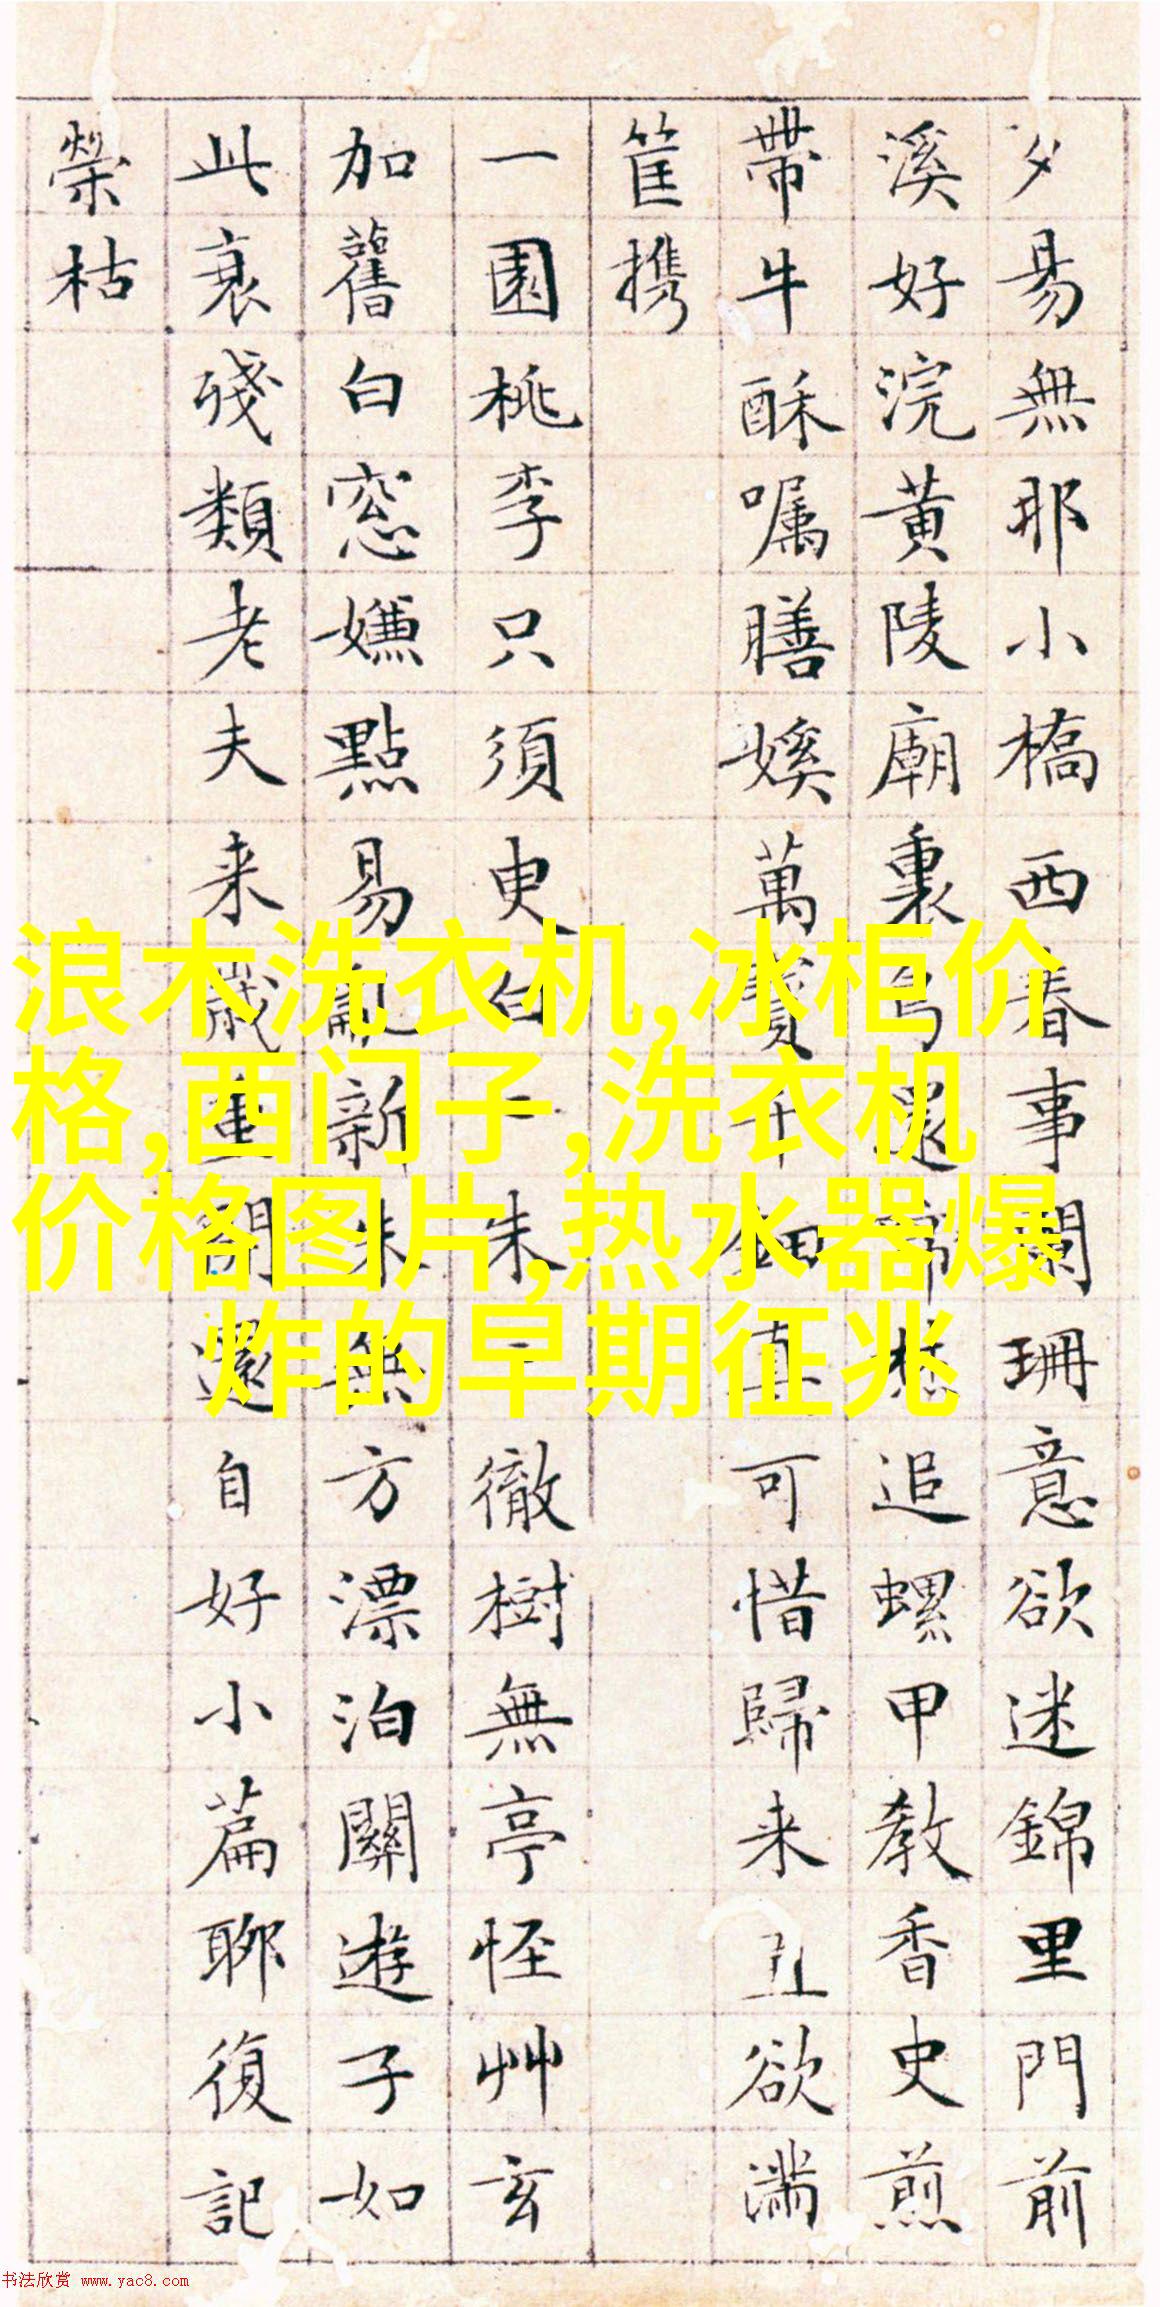 夕易無那小橋西春事闌珊意欲迷錦里門前
溪好浣黃陵廟裏還啼追螺甲教香史煎
帶牛酥嘱膳媄萬寶千鈿真可惜歸来丑欲滿
筐携
一園桃李只須臾白朱徹樹無亭怪艸玄
加舊白窓嫌點易亂新朱無方漂泊關遊子如
此衰殘類老夫来歲重開還自好小篇聊復記
榮枯
浪木洗衣机,冰柜价
格,西门子,洗衣机
价格图片,热水器爆
炸的早期征兆
书法欣赏 www.yac8.com